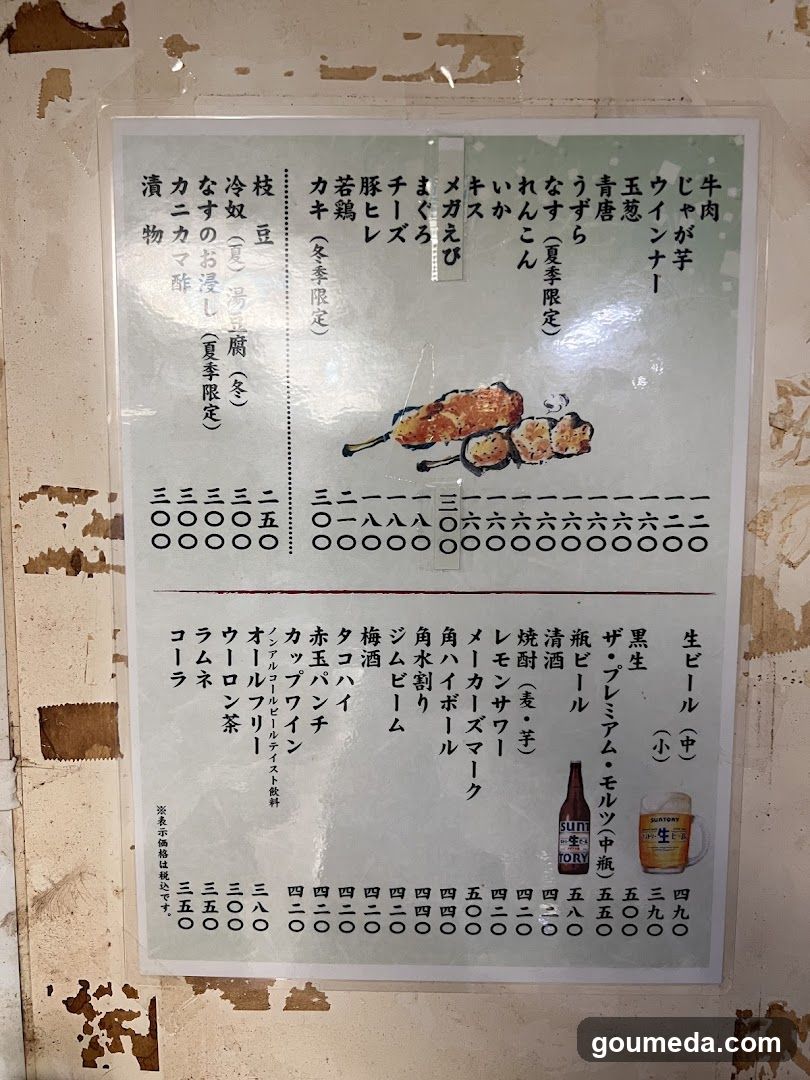 牛肉 一二〇
じゃが芋 一二〇
ウインナー 一六〇
玉葱 一六〇
青唐 一六〇
うずら 一六〇
なす（夏季限定） 一六〇
れんこん 一六〇
いか 一六〇
キス 一六〇
メガえび 三〇〇
まぐろ 一八〇
チーズ 一八〇
豚ヒレ 一八〇
若鶏 二一〇
カキ（冬季限定） 三〇〇
枝豆 二五〇
冷奴（夏）湯豆腐（冬） 三〇〇
なすのお浸し（夏季限定） 三〇〇
カニカマ酢 三〇〇
漬物 三〇〇
生ビール（中） 四九〇
（小） 三九〇
黒生 五〇〇
ザ・プレミアム・モルツ(中瓶) 五五〇
瓶ビール 五八〇
清酒 四二〇
焼酎（麦・芋） 四二〇
レモンサワー 四二〇
メーカーズマーク 五〇〇
角ハイボール 四四〇
角水割り 四四〇
ジムビーム 四二〇
梅酒 四二〇
タコハイ 四二〇
赤玉パンチ 四二〇
カップワイン 四二〇
ノンアルコールビールテイスト飲料
オールフリー 三八〇
ウーロン茶 三〇〇
ラムネ 三五〇
コーラ 三五〇
※表示価格は税込です。
SUNTORY
生ビール
SUNT
生ビール
TORY
goumeda.com